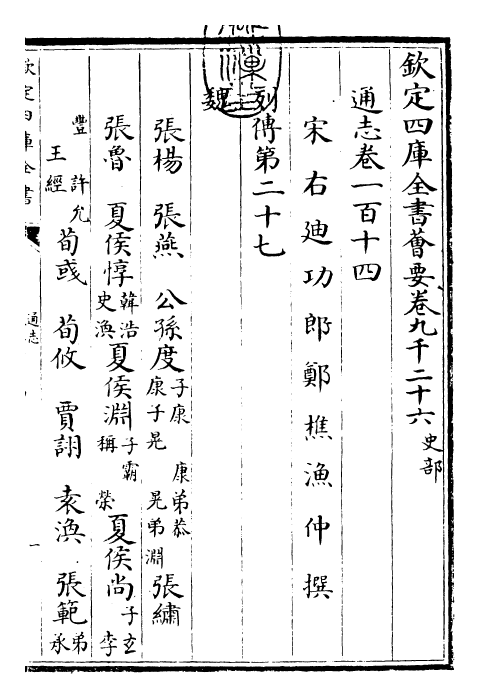 欽定四庫全書薈要卷九千二十六 史部
通志卷一百十四
宋右迪功郎鄭樵漁仲撰
列傳第二十七
魏
張楊 張燕 公孫度 子康 康子晃 康弟恭 晃弟淵 張繡
張魯 夏侯惇 韓浩 史渙 夏侯淵 子霸 稱 榮 夏侯尚 子玄 李
豐 許允 王經 荀彧 荀攸 賈詡 袁渙 張範 弟承
欽定四庫全書
通志
一